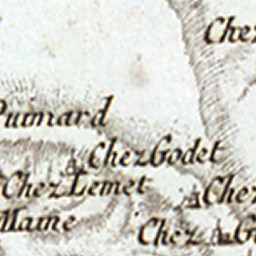 Chez
Puimard
Chez Godet
Chez Lemet
Chez
Maine
Chez